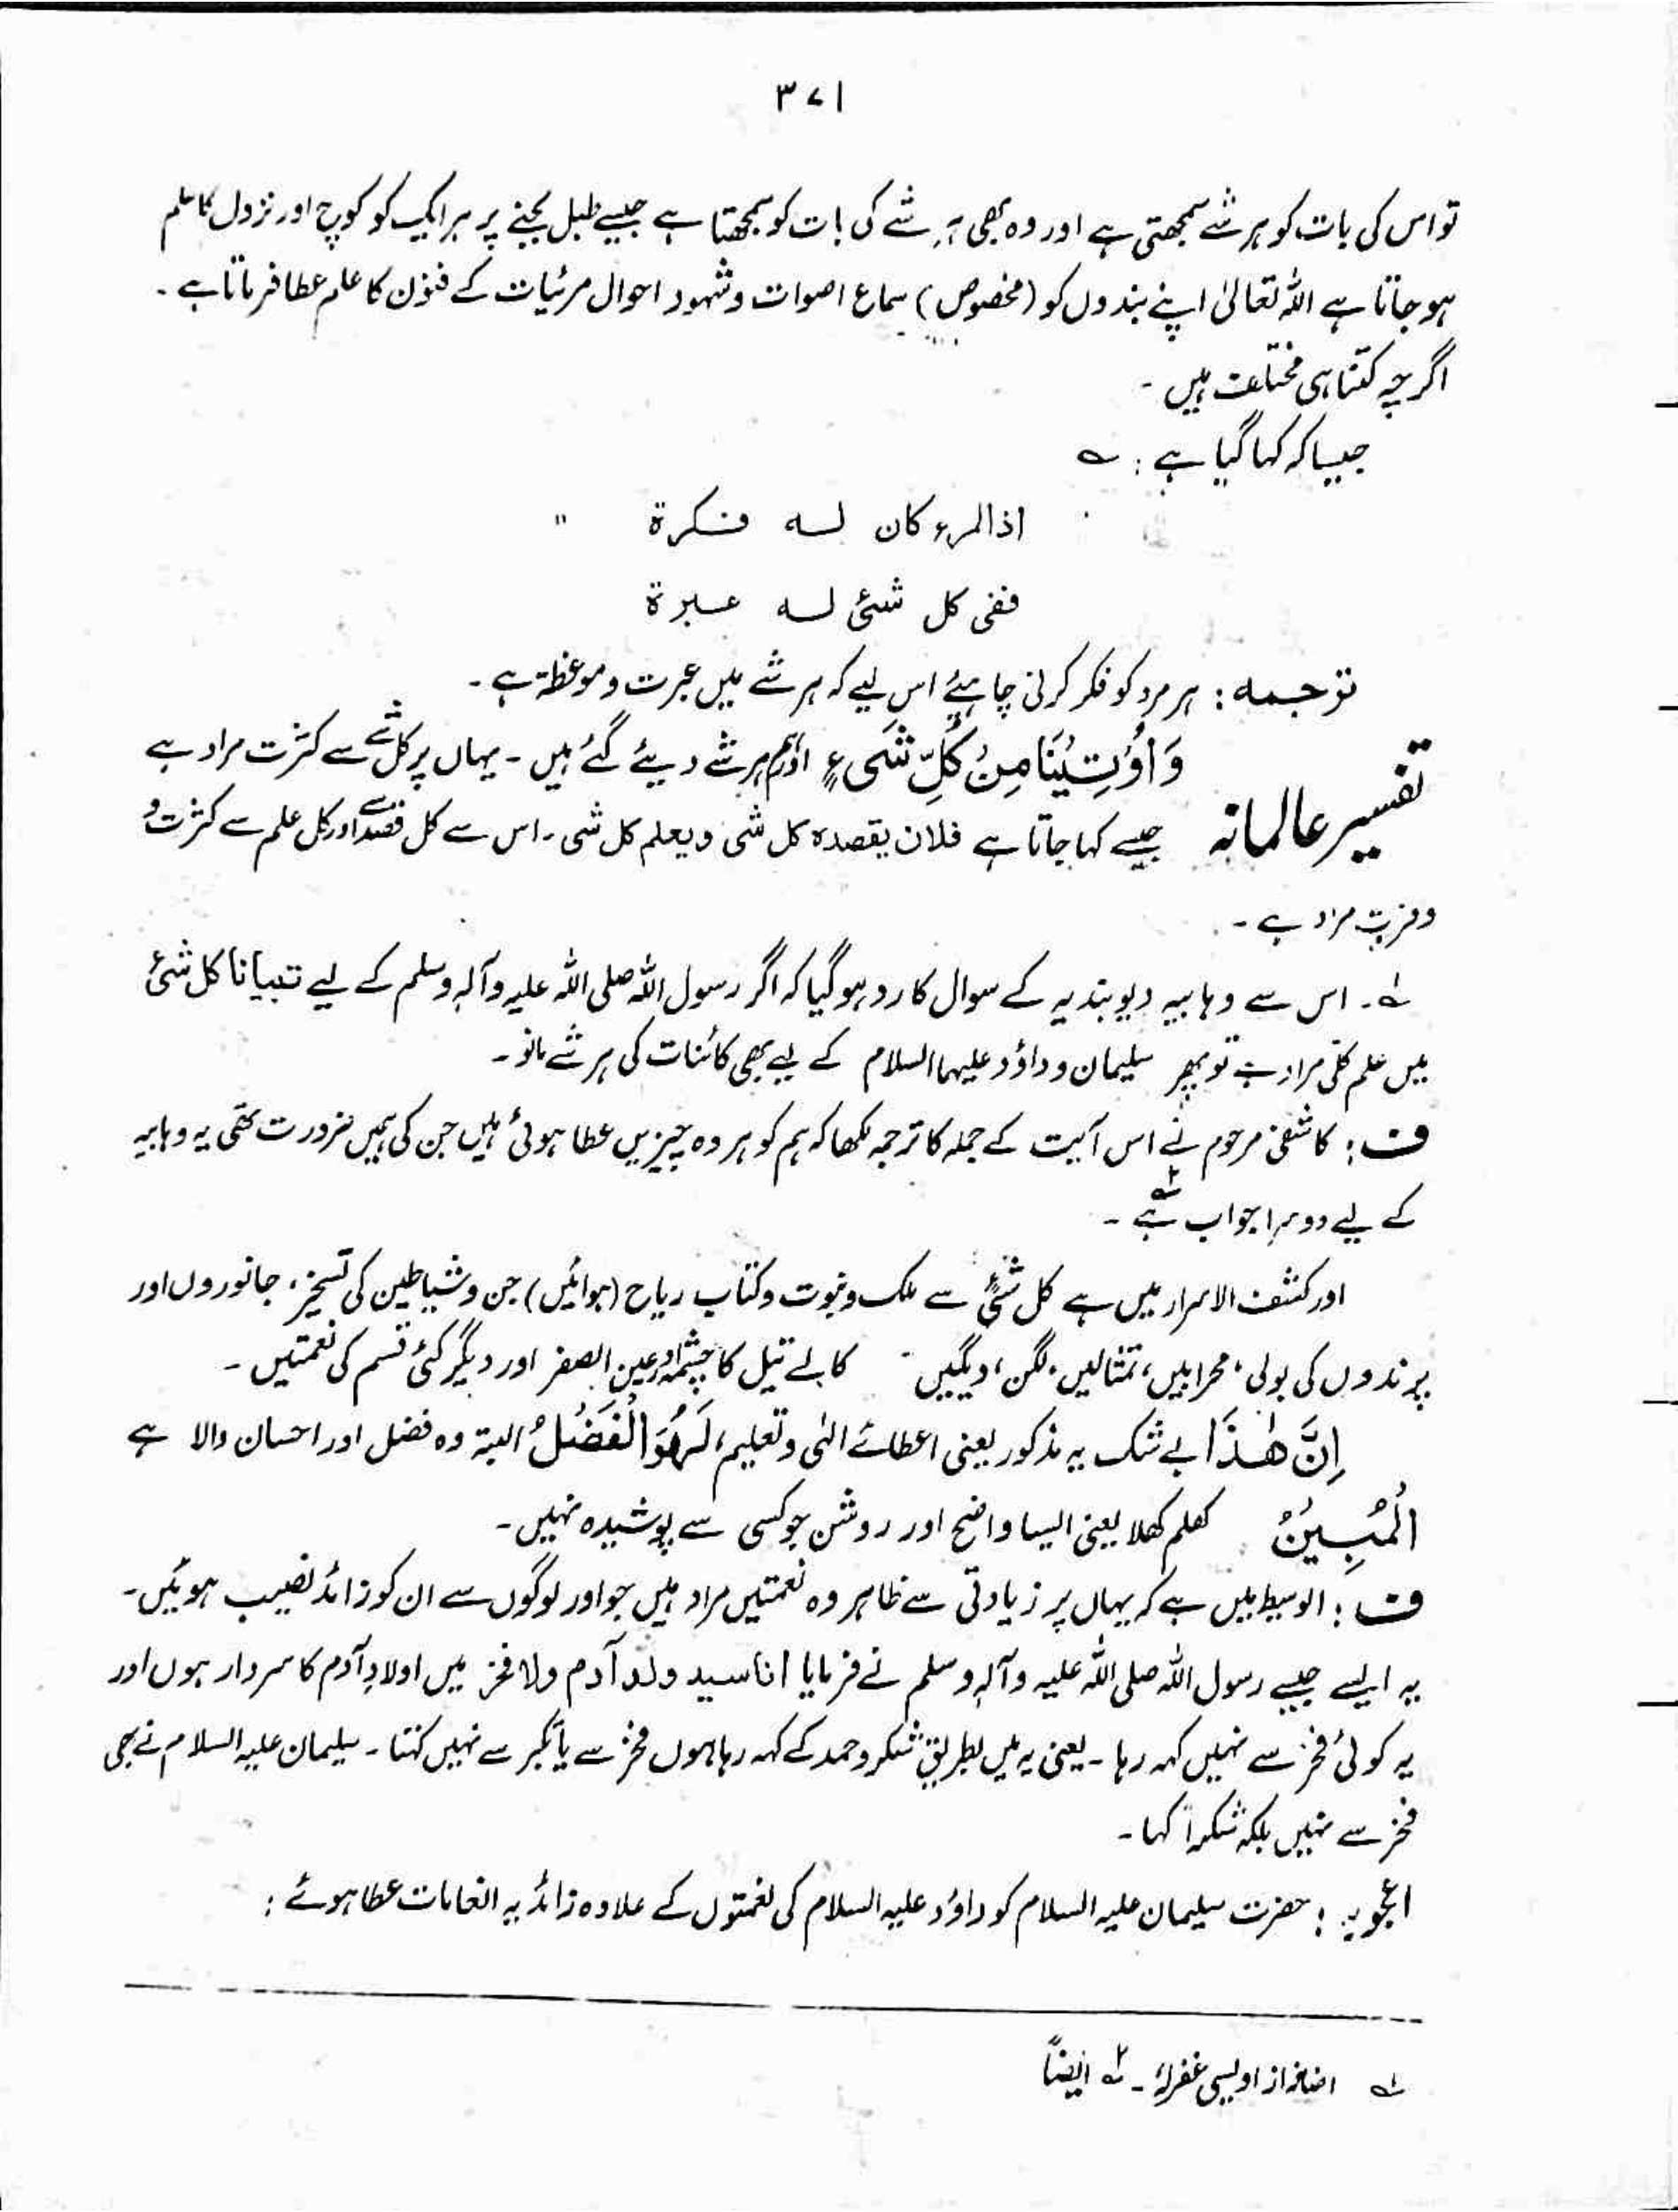 ۳۷۱
تو اس کی بات کو ہر شے سمجھتی ہے اور وہ بھی ہر شے کی بات کو سمجھتا ہے جیسے طبل بجنے پر ہر ایک کو کوچ اور نزول کا علم
ہو جاتا ہے اللہ تعالیٰ اپنے بندوں کو (مخصوص) سماع اصوات و شہود احوال مرئیات کے فنون کا علم عطا فرماتا ہے ۔
اگرچہ کتنا ہی مختلف ہیں ۔
جیسا کہ کہا گیا ہے : ؎
اذالمرء کان لہ فکرۃ "
ففی کل شئ لہ عبرۃ
ترجمہ : ہر مرد کو فکر کرنی چاہیئے اس لیے کہ ہر شے میں عبرت و موعظۃ ہے ۔
تفسیر عالمانہ وَاُوْتِیْنَا مِنْ کُلِّ شَیْءٍ اور ہم ہر شے دیئے گئے ہیں ۔ یہاں پر کل شے سے کثرت مراد ہے
جیسے کہا جاتا ہے فلان یقصدہ کل شی و یعلم کل شی ۔ اس سے کل قصد سے اور کل علم سے کثرت و
وفرت مراد ہے ۔
؎۱ ۔ اس سے وہابیہ دیوبندیہ کے سوال کا رد ہو گیا کہ اگر رسول اللہ صلی اللہ علیہ وآلہٖ وسلم کے لیے تبیانا کل شئ
میں علم کلی مراد ہے تو پھر سلیمان و داؤد علیہما السلام کے لیے بھی کائنات کی ہر شے مانو ۔
ف : کاشفی مرحوم نے اس آیت کے جملہ کا ترجمہ لکھا کہ ہم کو ہر وہ چیزیں عطا ہوئی ہیں جن کی ہمیں ضرورت تھی یہ وہابیہ
کے لیے دوسرا جواب ہے ؎۲ ۔
اور کشف الاسرار میں ہے کل شئٍ سے ملک و نبوت و کتاب ریاح (ہوائیں) جن و شیاطین کی تسخیر، جانوروں اور
پرندوں کی بولی، محرابیں، تمثالیں، لگن، دیگیں کالے تیل کا چشمہ اور عین الصفر اور دیگر کئی قسم کی نعمتیں ۔
اِنَّ ھٰذَا بے شک یہ مذکور یعنی اعطائے الٰہی و تعلیم، لَھُوَ الْفَضْلُ البتہ وہ فضل اور احسان والا ہے
الْمُبِیْنُ کھلم کھلا یعنی ایسا واضح اور روشن جو کسی سے پوشیدہ نہیں ۔
ف : الوسیط میں ہے کہ یہاں پر زیادتی سے ظاہر وہ نعمتیں مراد ہیں جو اور لوگوں سے ان کو زائد نصیب ہوئیں ۔
یہ ایسے جیسے رسول اللہ صلی اللہ علیہ وآلہٖ وسلم نے فرمایا انا سید ولد آدم ولا فخر میں اولادِ آدم کا سردار ہوں اور
یہ کوئی فخر سے نہیں کہہ رہا ۔ یعنی یہ میں بطریق شکر و حمد کے کہہ رہا ہوں فخر سے یا تکبر سے نہیں کہتا ۔ سلیمان علیہ السلام نے بھی
فخر سے نہیں بلکہ شکراً کہا ۔
اعجوبہ : حضرت سلیمان علیہ السلام کو داؤد علیہ السلام کی نعمتوں کے علاوہ زائد یہ انعامات عطا ہوئے :
؎۱ اضافہ از اویسی غفرلہٗ ۔ ؎۲ ایضاً